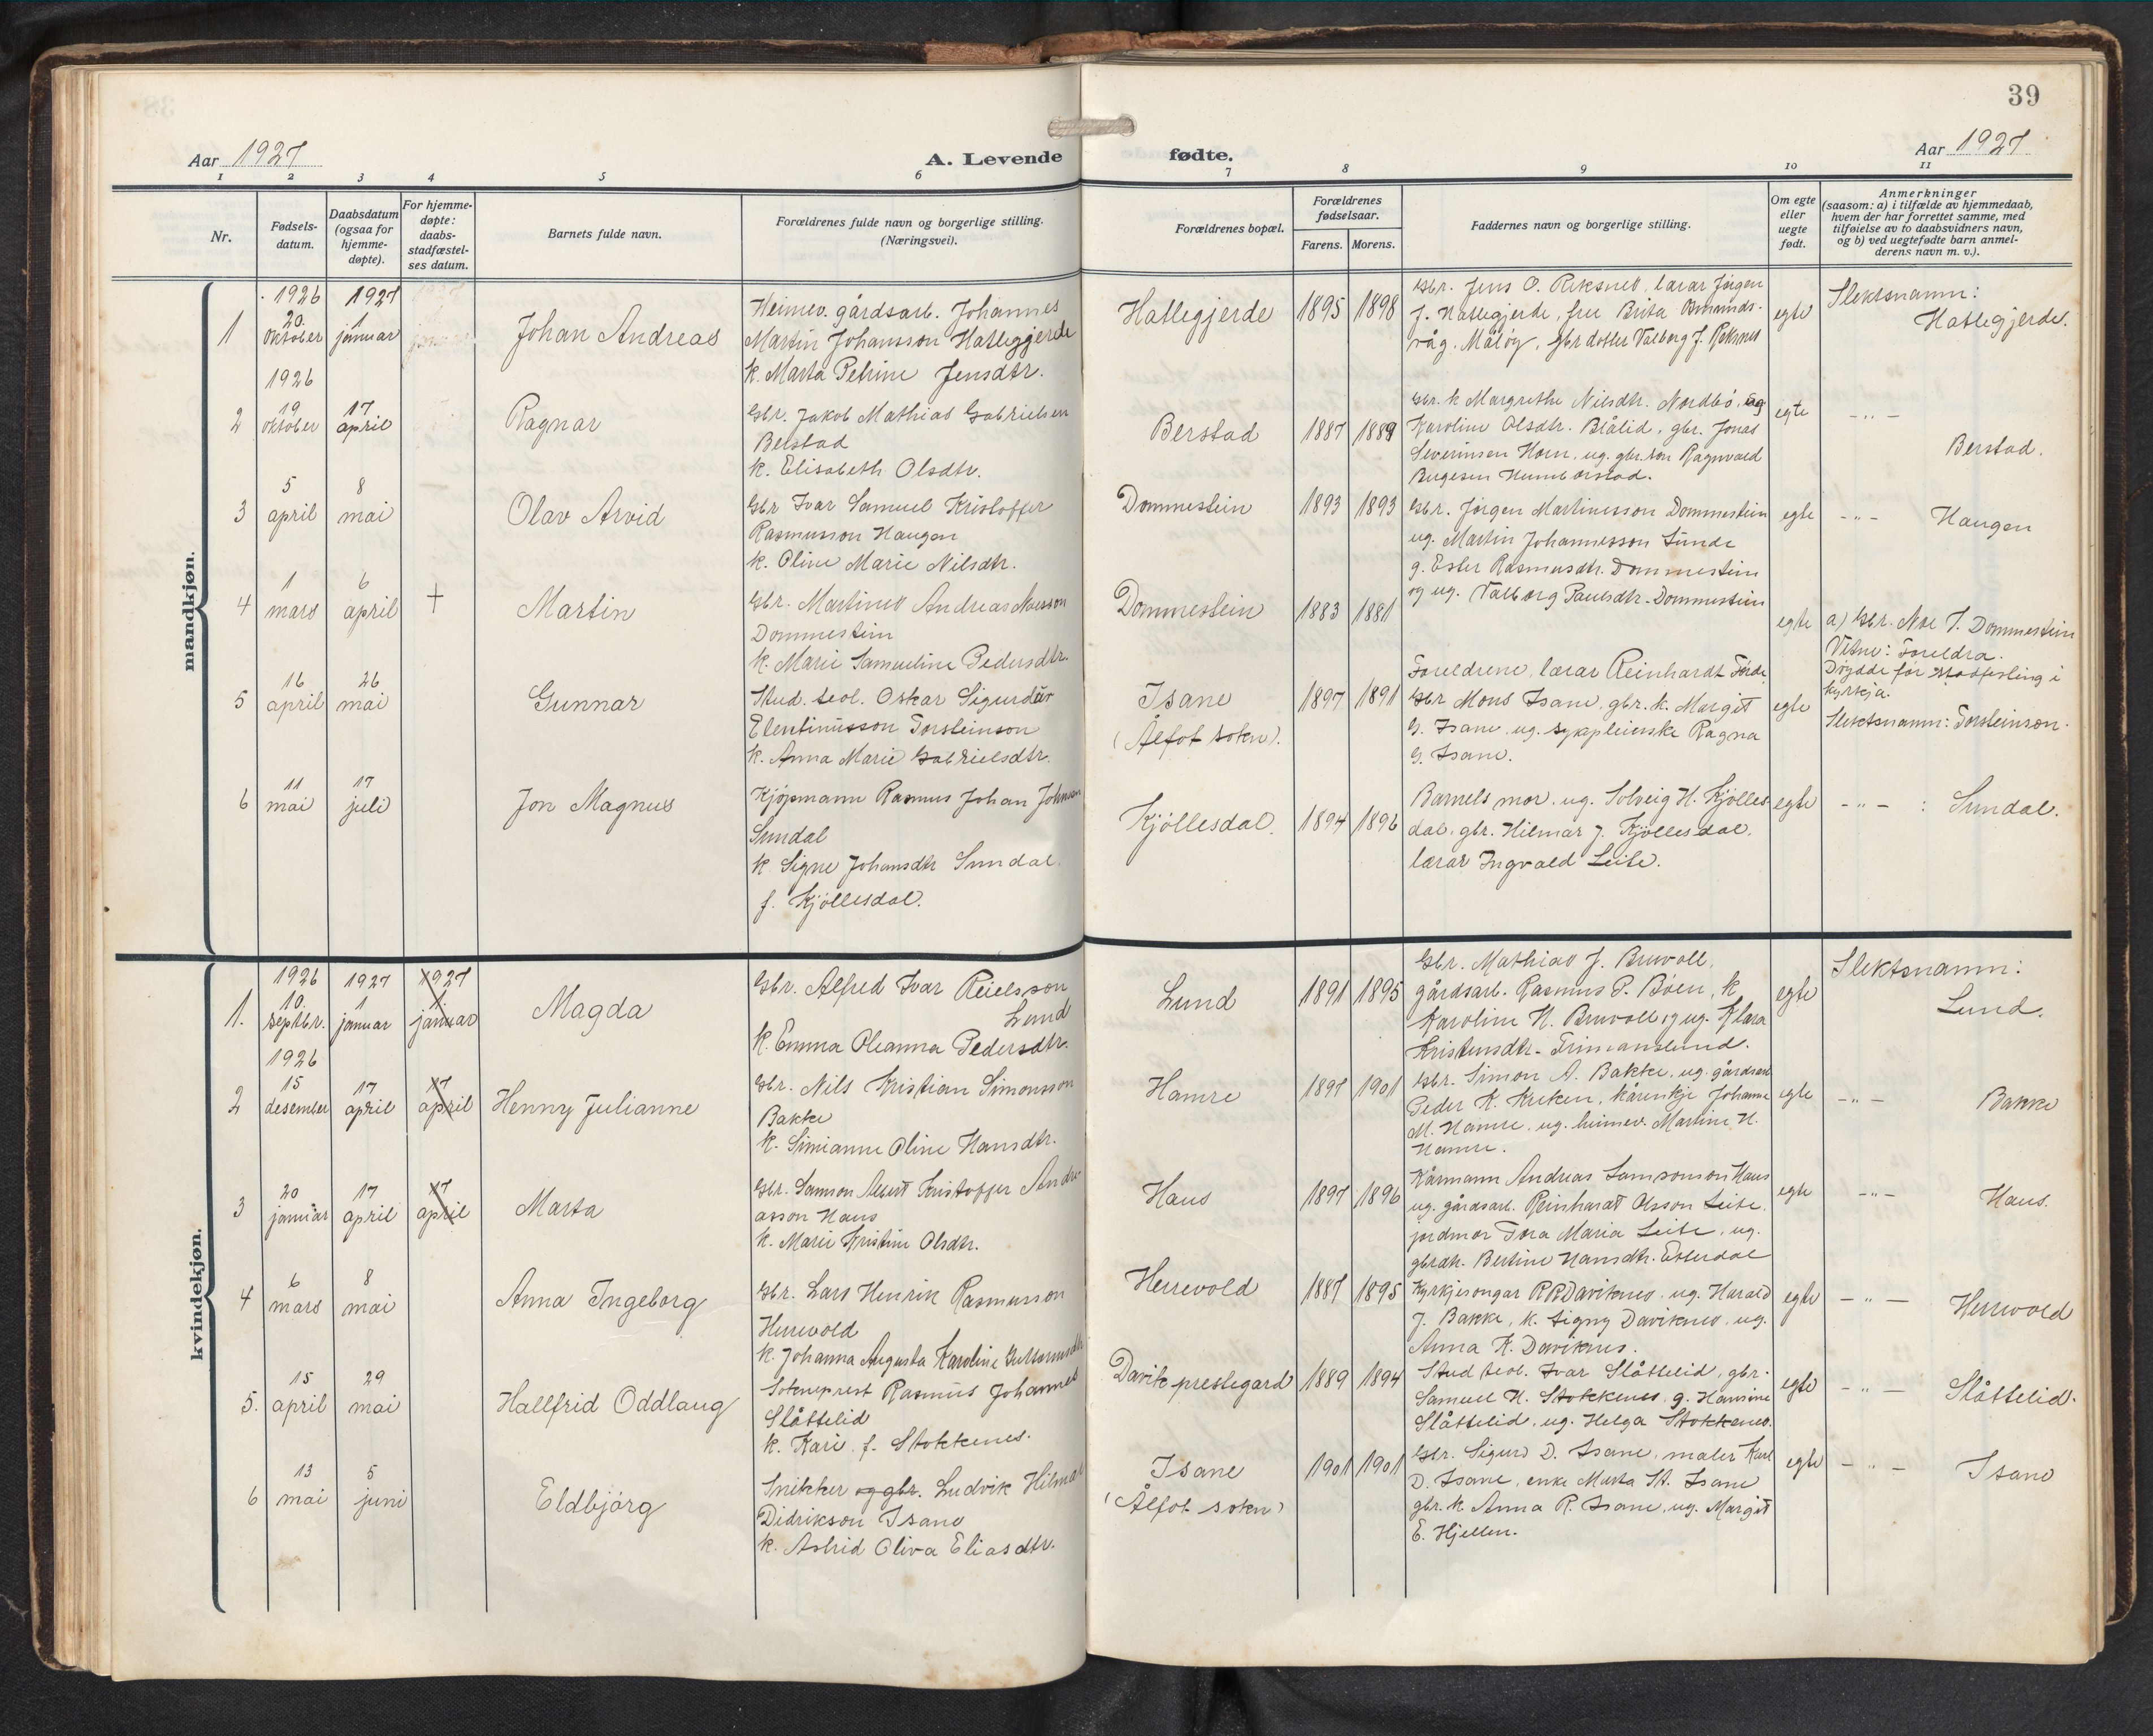 39
Aar 1927
A. Levende
fødte.
Aar 1927
1 2 3 4 5 6 7 8 9 10 11
Nr.
Fødsels-
datum.
Daabsdatum
(ogsaa for
hjemme-
døpte).
For hjemme-
døpte:
daabs-
stadfæstel-
ses datum.
Barnets fulde navn.
Forældrenes fulde navn og borgerlige stilling.
(Næringsvei).
Forældrenes bopæl.
Forældrenes
fødselsaar.
Farens. Morens.
Faddernes navn og borgerlige stilling.
Om egte
eller
uegte
født.
Anmerkninger
(saasom: a) i tilfælde av hjemmedaab,
hvem der har forrettet samme, med
tilføielse av to daabsvidners navn,
og b) ved uegtefødte barn anmel-
derens navn m. v.).
mandkjøn.
1
1926
20.
oktober
1927
1
januar
Johan Andreas
Heimev. gårdsarb. Johannes
Martin Johansson Hatlegjerde
k. Marta Petrine Jensdtr.
Hatlegjerde
1895 1898
Gbr. Jens O. Reksnes, lærar Jørgen
J. Hatlegjerde, fru Brita Osmunds-
våg. Måløy, gbrdotter Valborg J. Reksnes
egte
Slektsnamn:
Hatlegjerde.
2
1926
19
oktober
17
april
Ragnar
Gbr. Jakob Mathias Gabrielsen
Berstad
k. Elisabeth Olsdtr.
Berstad
1887 1889
Gbr. k Margrethe Nilsdtr. Nordbö, ug
Karoline Olsdtr. Blålid, gbr. Jonas
Severinsen Horn, ug. gbr.son Ragnvald
Humborstad.
egte
- " -
Berstad.
3
5
april
8
mai
Olav Arvid
Gbr Ivar Samuel Kristoffer
Rasmusson Haugen
k. Oline Marie Nilsdtr.
Dommestein
1893 1893
Gbr. Jørgen Martinusson Dommestein
ug. Martin Johannesson Sunde
g. Ester Rasmusdtr. Dommestein
og ug. Valborg Paulsdtr. Dommestein
egte
- " - Haugen
4
1
mars
6
april
+
Martin
Gbr. Martinus Andreas Noesson
Dommestein
k. Marie Samueline Pedersdtr.
Dommestein
1883 1881
egte
a) Gbr. Noe J. Dommestein
Vitne: Foreldra.
Döydde för stadfesting i
kyrkja.
5
16
april
26
mai
Gunnar
Stud. teol. Oskar Sigurder
Elentinusson Torsteinson
k. Anna Marie Gabrielsdtr.
Isane
(Ålfot sokn).
1897 1891
Foreldrene, lærar Reinhardt Förde
Gbr Mons Isane, gbr. k. Margit
G. Isane, ug. sykepleierske Ragna
G. Isane.
egte
Slektsnamn: Torsteinson.
6
11
mai
17
juli
Jon Magnus
Kjöpmann Rasmus Johan Johnson
Sundal
k. Signe Johansdtr Sundal.
f. Kjöllesdal.
Kjöllesdal.
1894 1896
Barnets mor, ug. Solveig H. Kjölles-
dal, gbr. Hilmar J. Kjöllesdal,
lærar Ingvald Leite.
egte
- " - : Sundal.
kvindekjøn.
1.
1926
10.
septbr.
1927
1
januar
1927
1.
januar
Magda
Gbr. Alfred Ivar Reielsson
Lund
k. Emma Oleanna Pedersdtr.
Lund
1891 1895
Gbr. Mathias J. Bruvoll,
gårdsarb. Rasmus P. Böen, k
Karoline H. Bruvoll og ug. Klara
Kristensdtr. Frimanslund.
egte
Slektsnamn:
Lund.
2
1926
15
desember
17
april
17
april
Henny Julianne
Gbr. Nils Kristian Simonsson
Bakke
k. Simianne Oline Hansdtr.
Hamre
1897 1901
Gbr. Simon A. Bakke, ug. gårdsarb
Peder K. Kreken, kårenkje Johanne
M. Hamre, ug. heimev. Martine H.
Hamre.
egte
- " -
Bakke
3
20
januar
17
april
17
april
Marta
Gbr. Samson Albert Kristoffer Andre-
asson Haus
k. Marie Kristine Olsdtr.
Haus
1897 1896
Kårmann Andreas Samsonson Haus
ug. gårdsarb. Reinhardt Olsson Leite,
jordmor Tora Maria Leite, ug.
gbrdtr. Bertine Hansdtr. Endal
egte
- " -
Haus.
4
6
mars
8
mai
Anna Ingeborg
Gbr. Lars Henrik Rasmusson
Herrevold
k. Johanna Augusta Karoline Guttormsdtr
Herrevold
1887 1895
Kyrkjesongar R.R. Daviknes, ug. Harald
J. Bakke, k. Signy Daviknes, ug.
Anna K. Daviknes.
egte
- " -
Herrevold
5.
15
april
29
mai
Hallfrid Oddlaug
Sokneprest Rasmus Johannes
Slåttelid
k. Kari f. Stokkenes.
Davik prestegard
1889 1894
Stud teol. Ivar Slåttelid, gbr.
Samuel H. Stokkenes, g. Hansine
Slåttelid, ug. Helga Stokkenes.
egte
- " -
Slåttelid.
6
13
mai
5
juni
Eldbjörg
Snikker og gbr. Ludvik Hilmar
Didrikson Isane
k. Astrid Oliva Eliasdtr.
Isane
(Ålfot sokn)
1901 1901
Gbr. Sigurd D. Isane, maler Karl
D. Isane, enke Marta St. Isane
gbr. k. Anna R. Isane, ug. Margit
E. Hjellen.
egte
- " -
Isane